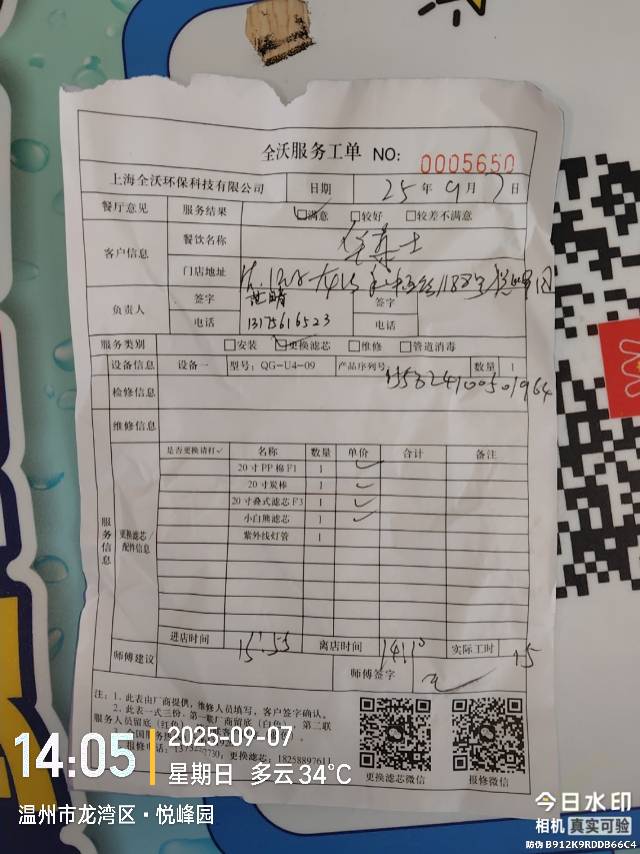 全沃服务工单 NO: 0005650
上海全沃环保科技有限公司 日期 25 年 9 月 7 日
餐厅意见 服务结果 满意 较好 较差不满意
客户信息 餐饮名称 华莱士
门店地址
负责人 签字 签字
电话 13175616523 电话
服务类别 安装 更换滤芯 维修 管道消毒
设备信息 设备一 型号: QG-U4-09 产品序列号 数量 1
检修信息
维修信息
服务信息
更换滤芯/配件信息
是否更换请打✓ 名称 数量 单价 合计 备注
20寸PP棉F1 1 ✓
20寸炭棒 1
20寸叠式滤芯F3 1 ✓
小白熊滤芯 1 ✓
紫外线灯管 1
进店时间 离店时间 实际工时 15
师傅建议 师傅签字
注: 1. 此表由厂商提供, 维修人员填写, 客户签字确认。
2. 此表一式三份. 第一联厂商留底 (白色), 第二联
服务人员留底 (红色)
更换滤芯: 18258897611
更换滤芯微信 报修微信
14:05 2025-09-07
星期日 多云 34℃
温州市龙湾区·悦峰园
今日水印
相机 真实可验
防伪 B912K9RDDB66C4